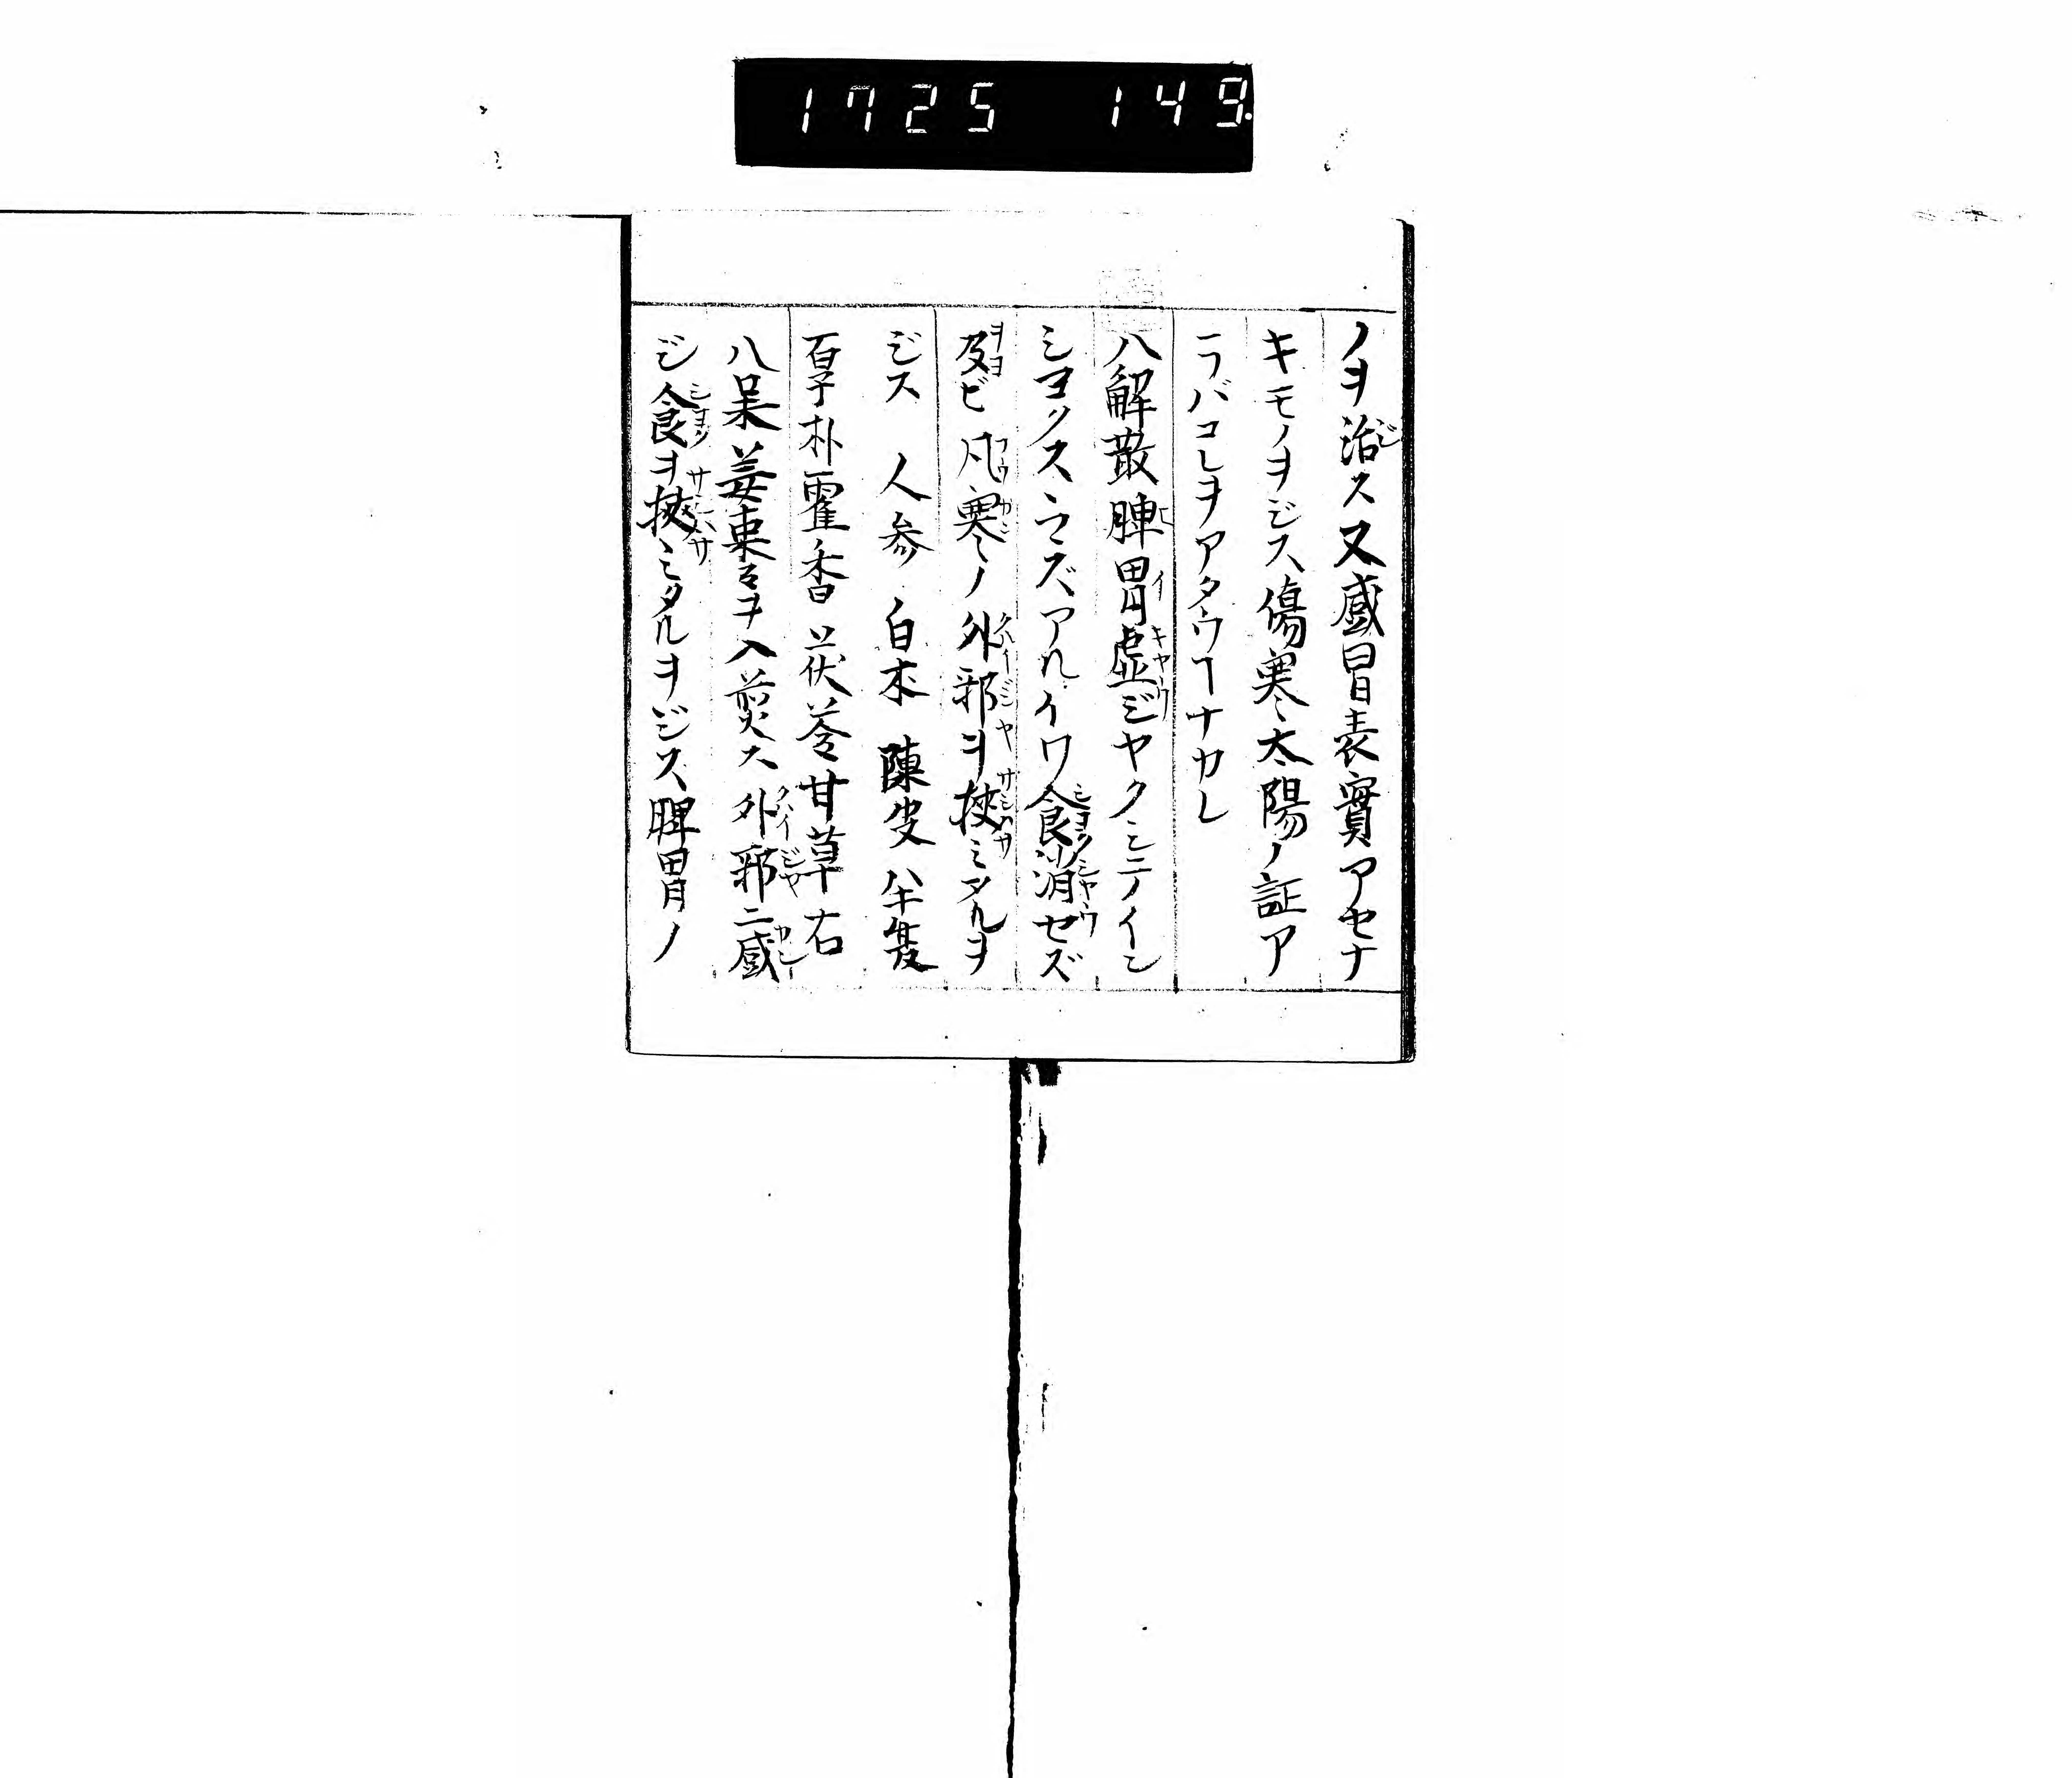 1725 149.
ノヲ治ス又感冒表實アセナ
キモノヲジス傷寒太陽ノ証ア
ラバコレヲアタウヿナカレ
八解散脾胃虚ジヤクシテイン
シヨクスヽマズアルイワ食消セズ
及ビ風寒ノ外邪ヲ挾ミタルヲ
ジス 人参 白朮 陳皮 半夏
厚朴霍香茯苓甘草右
八味姜棗ヲ入煎ス外邪ニ感
ジ食ヲ挾ミタルヲジス脾胃ノ